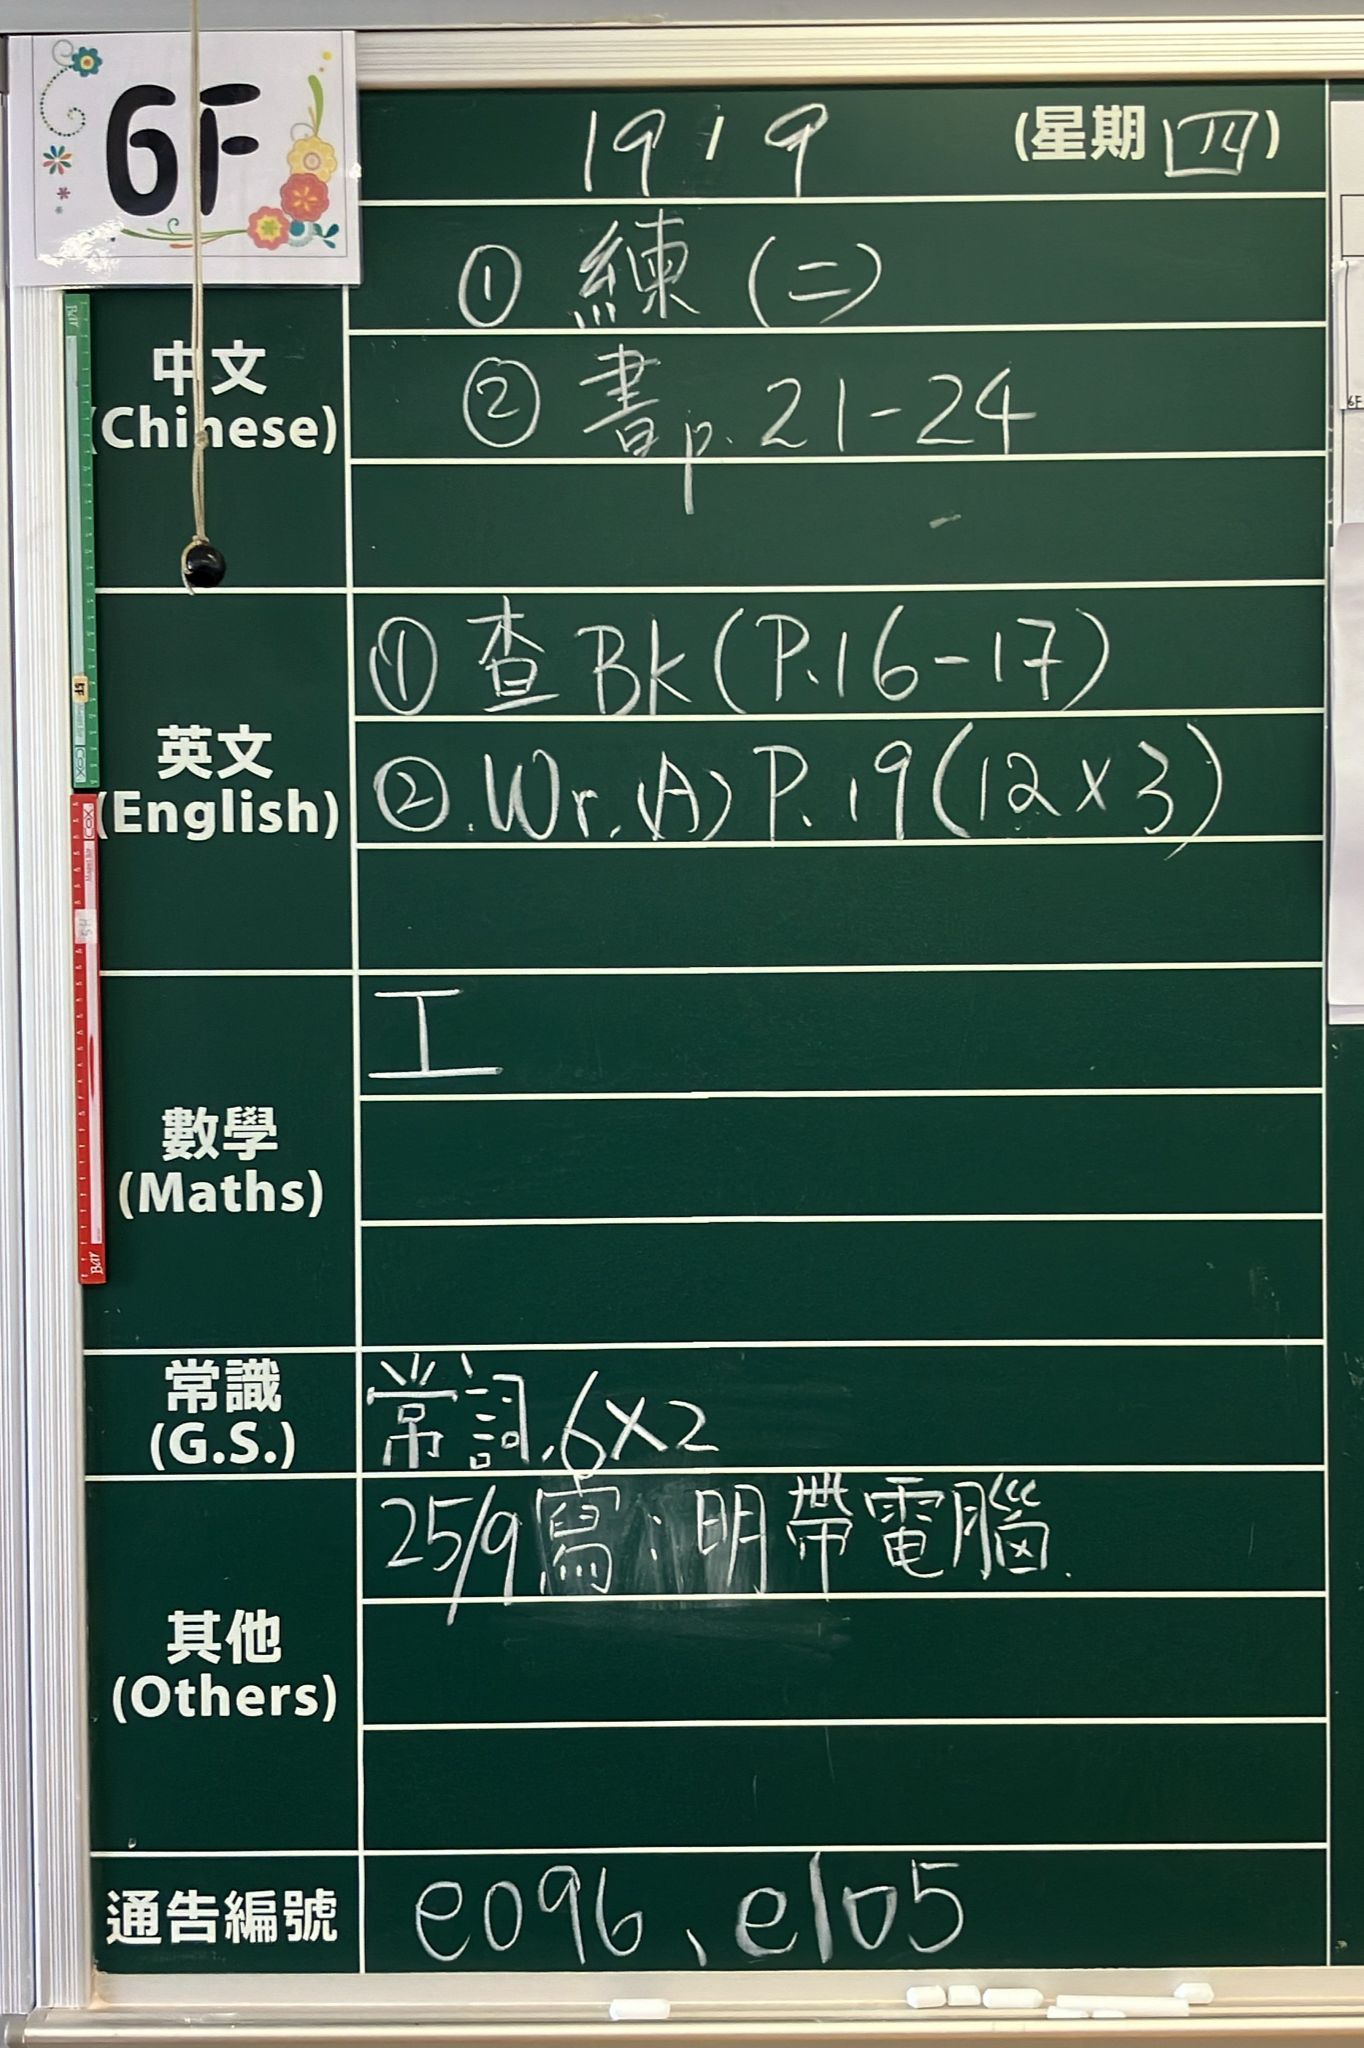 6F
19 / 9 (星期四)
中文
(Chinese)
① 練 (二)
② 書 p. 21-24
英文
(English)
① 查 Bk (P.16-17)
② Wr. (A) P.19 (12 x 3)
數學
(Maths)
工
常識
(G.S.)
常詞.6X2
其他
(Others)
25/9寫:明帶電腦.
通告編號
e096、e105